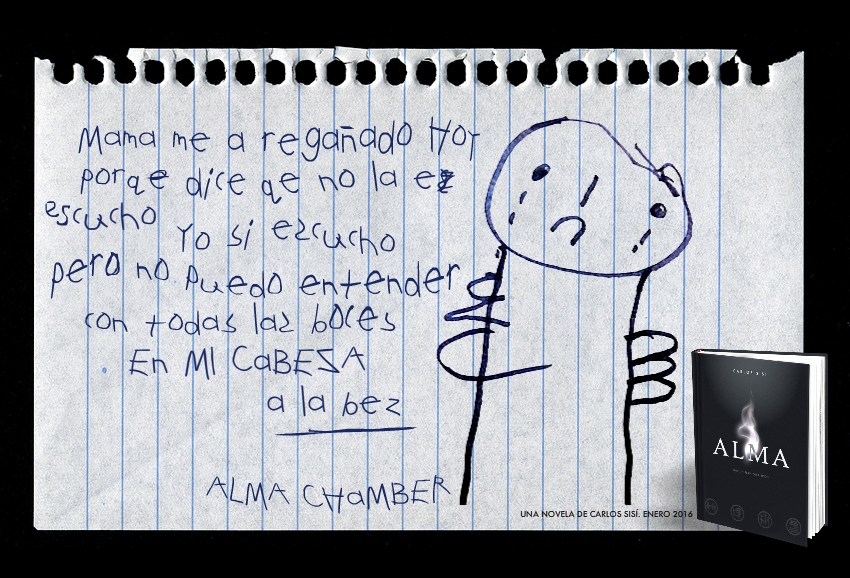 Mama me a regañado HOY
porqe dice qe no la ez
escucho Yo si ezcucho
pero no puedo entender
con todas laz boces
En MI CaBESA
a la bez
ALMA CHaMBER
UNA NOVELA DE CARLOS SISÍ. ENERO 2016
CARLOS SISÍ
ALMA